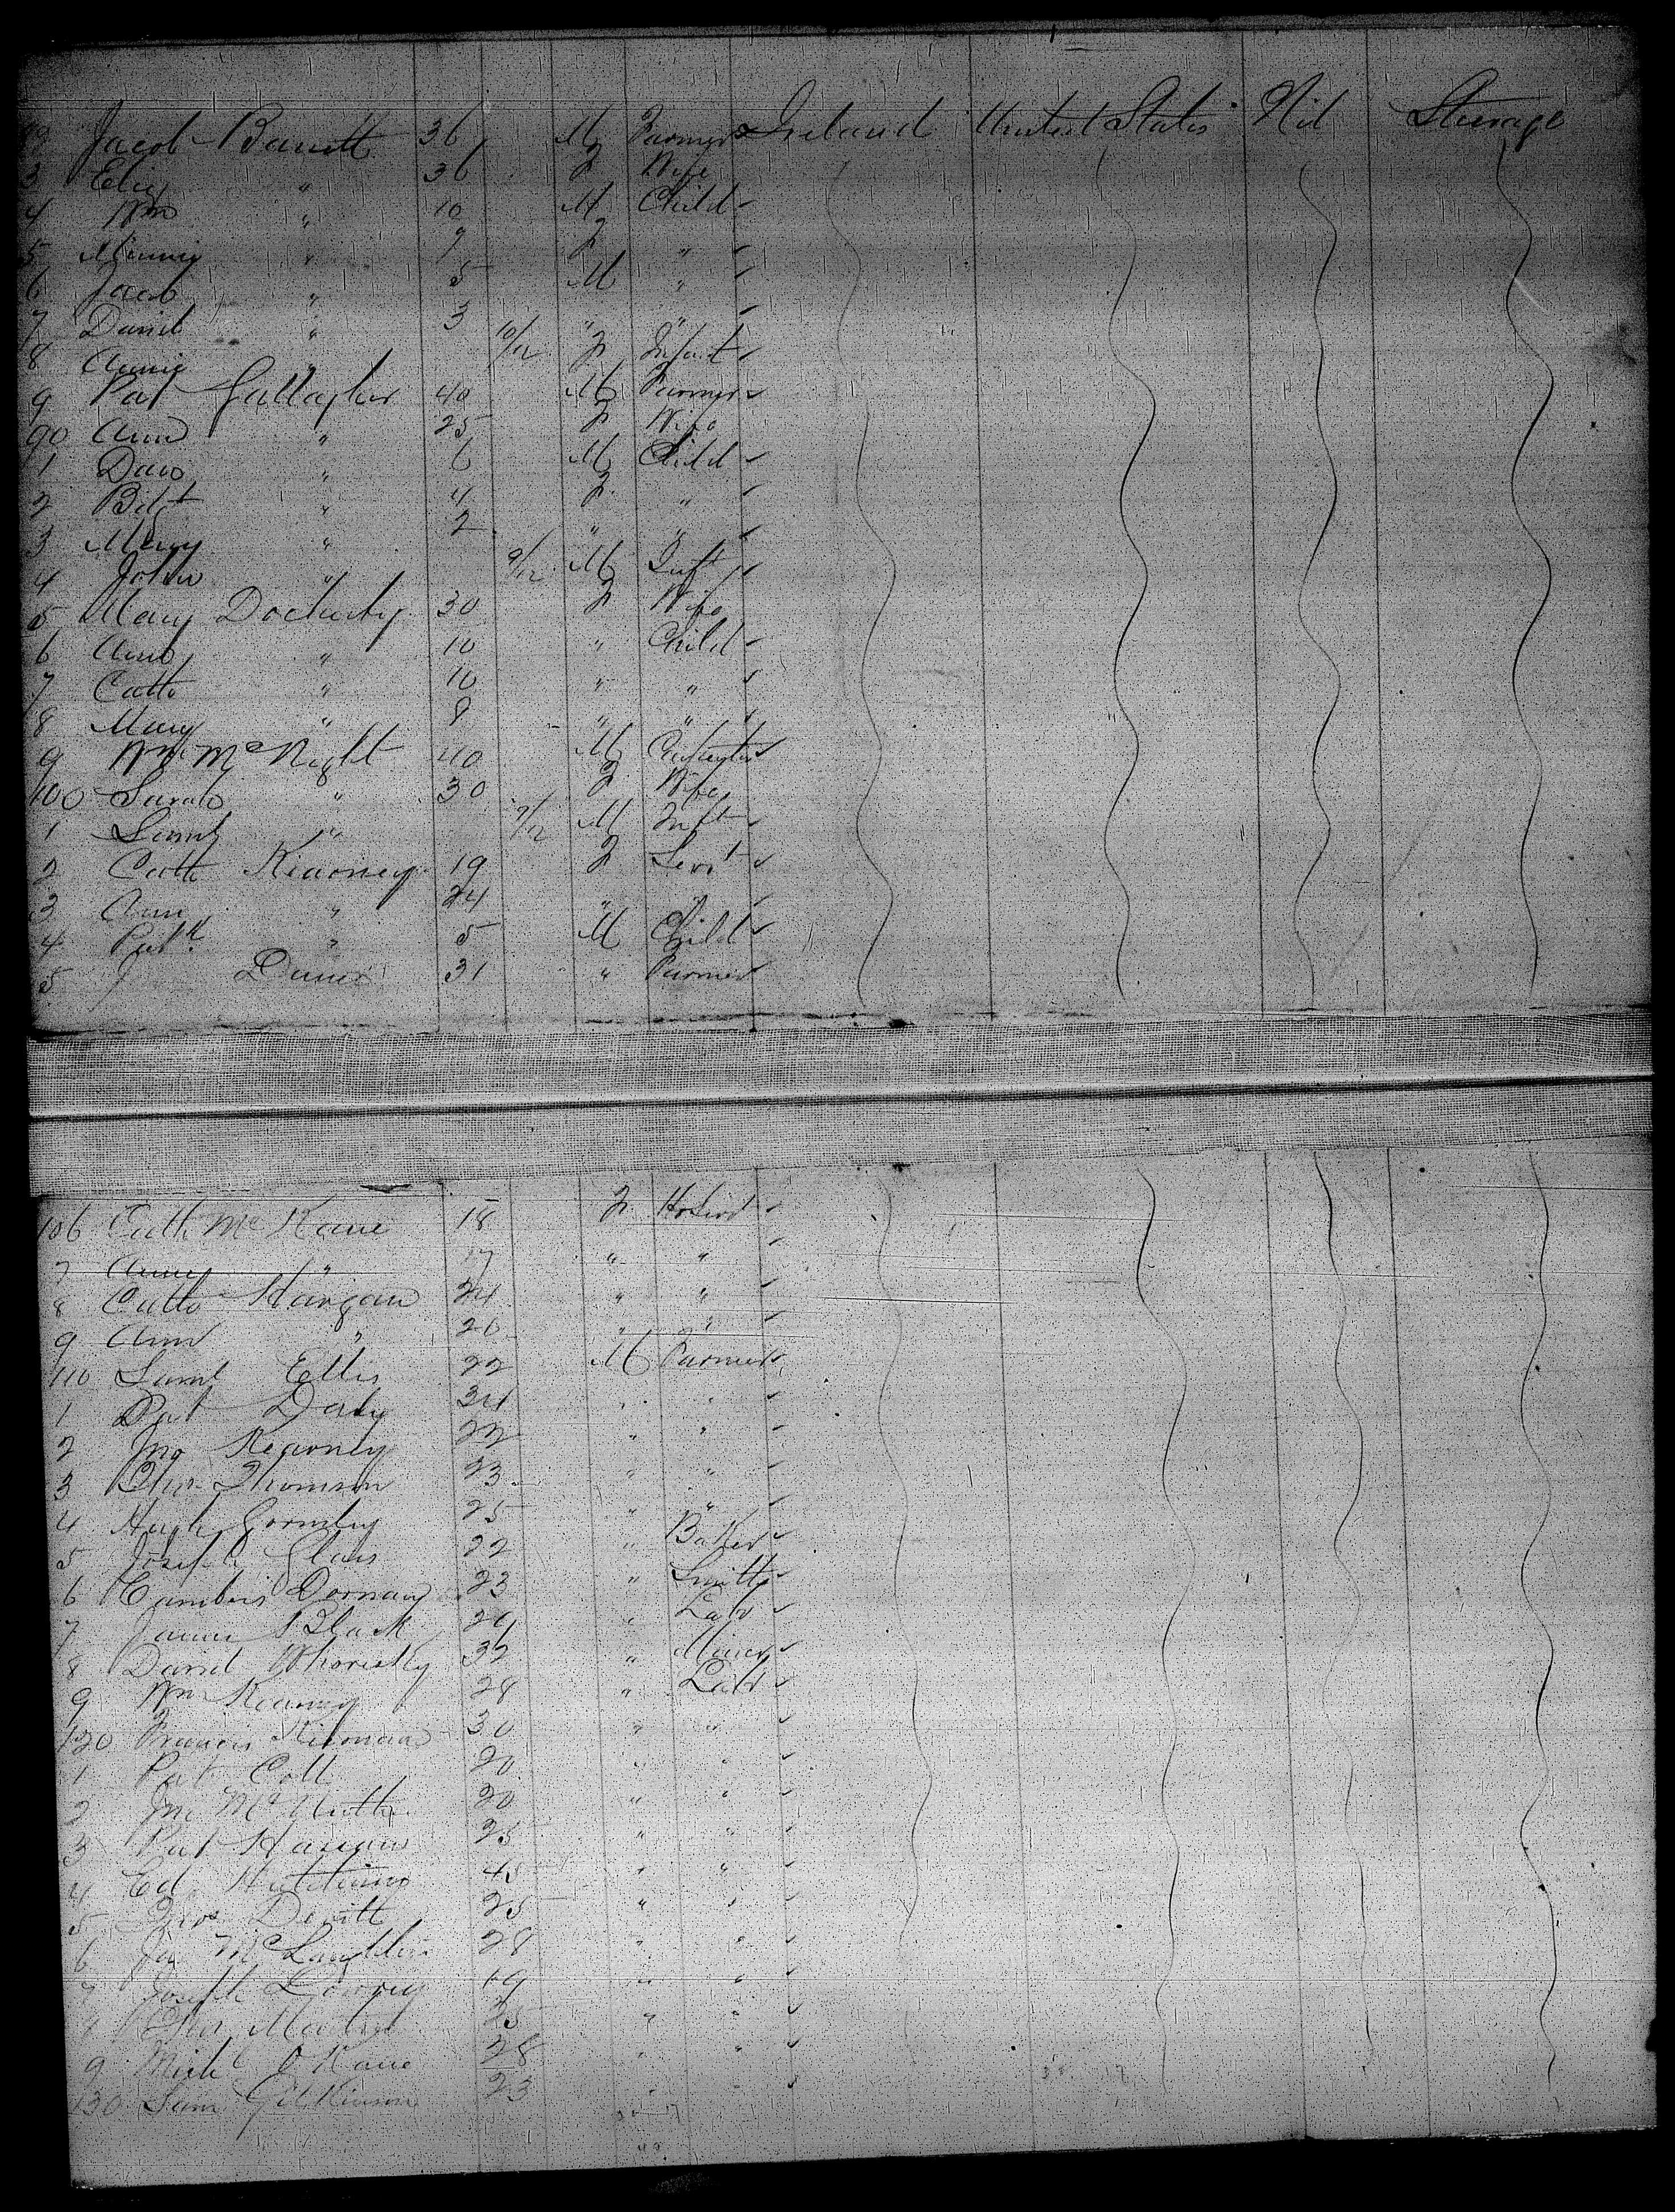 Jacob Barrett 36 M Farmer Ireland United States Nil Steerage
3 Eliz " 36 F Wife
4 Wm " 10 M Child
5 Minnie " 7 F "
6 Jacob " 5 M "
7 Daniel " 3 " "
8 Annie " 10/12 F Infant
9 Pat Gallagher 40 M Farmer
90 Ann " 25 F Wife
1 " 6 M Child
2 " 4 F "
3 Mary " 2 " "
4 John " 9/12 M Inft
5 Mary Docherty 30 F Wife
6 Ann " 10 " Child
7 Cath " 10 " "
8 Mary " 8 " "
9 Wm McNight 40 M
100 Sarah " 30 F Wife
1 Saml " 7/12 M Inft
2 Cath Kearney 19 F Servt
3 Ann " 24 " "
4 Patk " 5 M Child
5 31 " Farmer
106 Cath McKane 18 F
7 Anny " 17 " "
8 Cath Hargan 24 " "
9 Ann " 26 " "
110 Saml Ellis 22 M Farmer
1 Pat Daly 34 " "
2 Jno Kearney 22 " "
3 Thomson 23 " "
4 Hugh Gormley 25 " "
5 Joseph 22 " Baker
6 Dornan 23 " Smith
7 James Black 29 " Labr
8 David 32 " Miner
9 Wm Kearney 28 " Labr
120 Francis 30 " "
1 Pat Coll 20 " "
2 Jno 20 " "
3 Pat 25 " "
4 Ed 45 " "
5 25 " "
6 Jas McLaughlin 28 " "
7 Joseph 19 " "
25 " "
9 Michl O'Kane 28 " "
130 Sam Gilkinson 23 " "